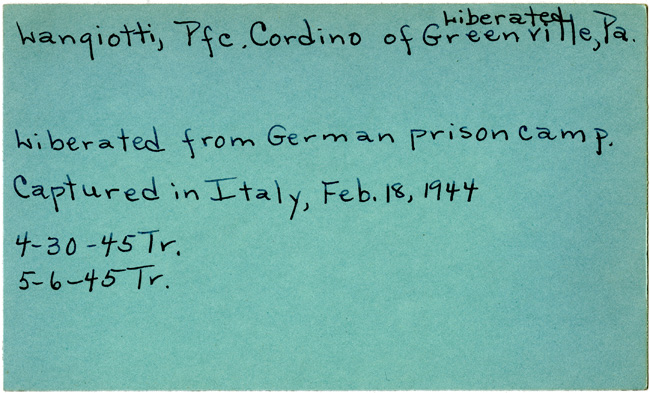 Liberated
Langiotti, Pfc. Cordino of Greenville, Pa.
Liberated from German prison camp.
Captured in Italy, Feb. 18, 1944
4-30-45 Tr.
5-6-45 Tr.